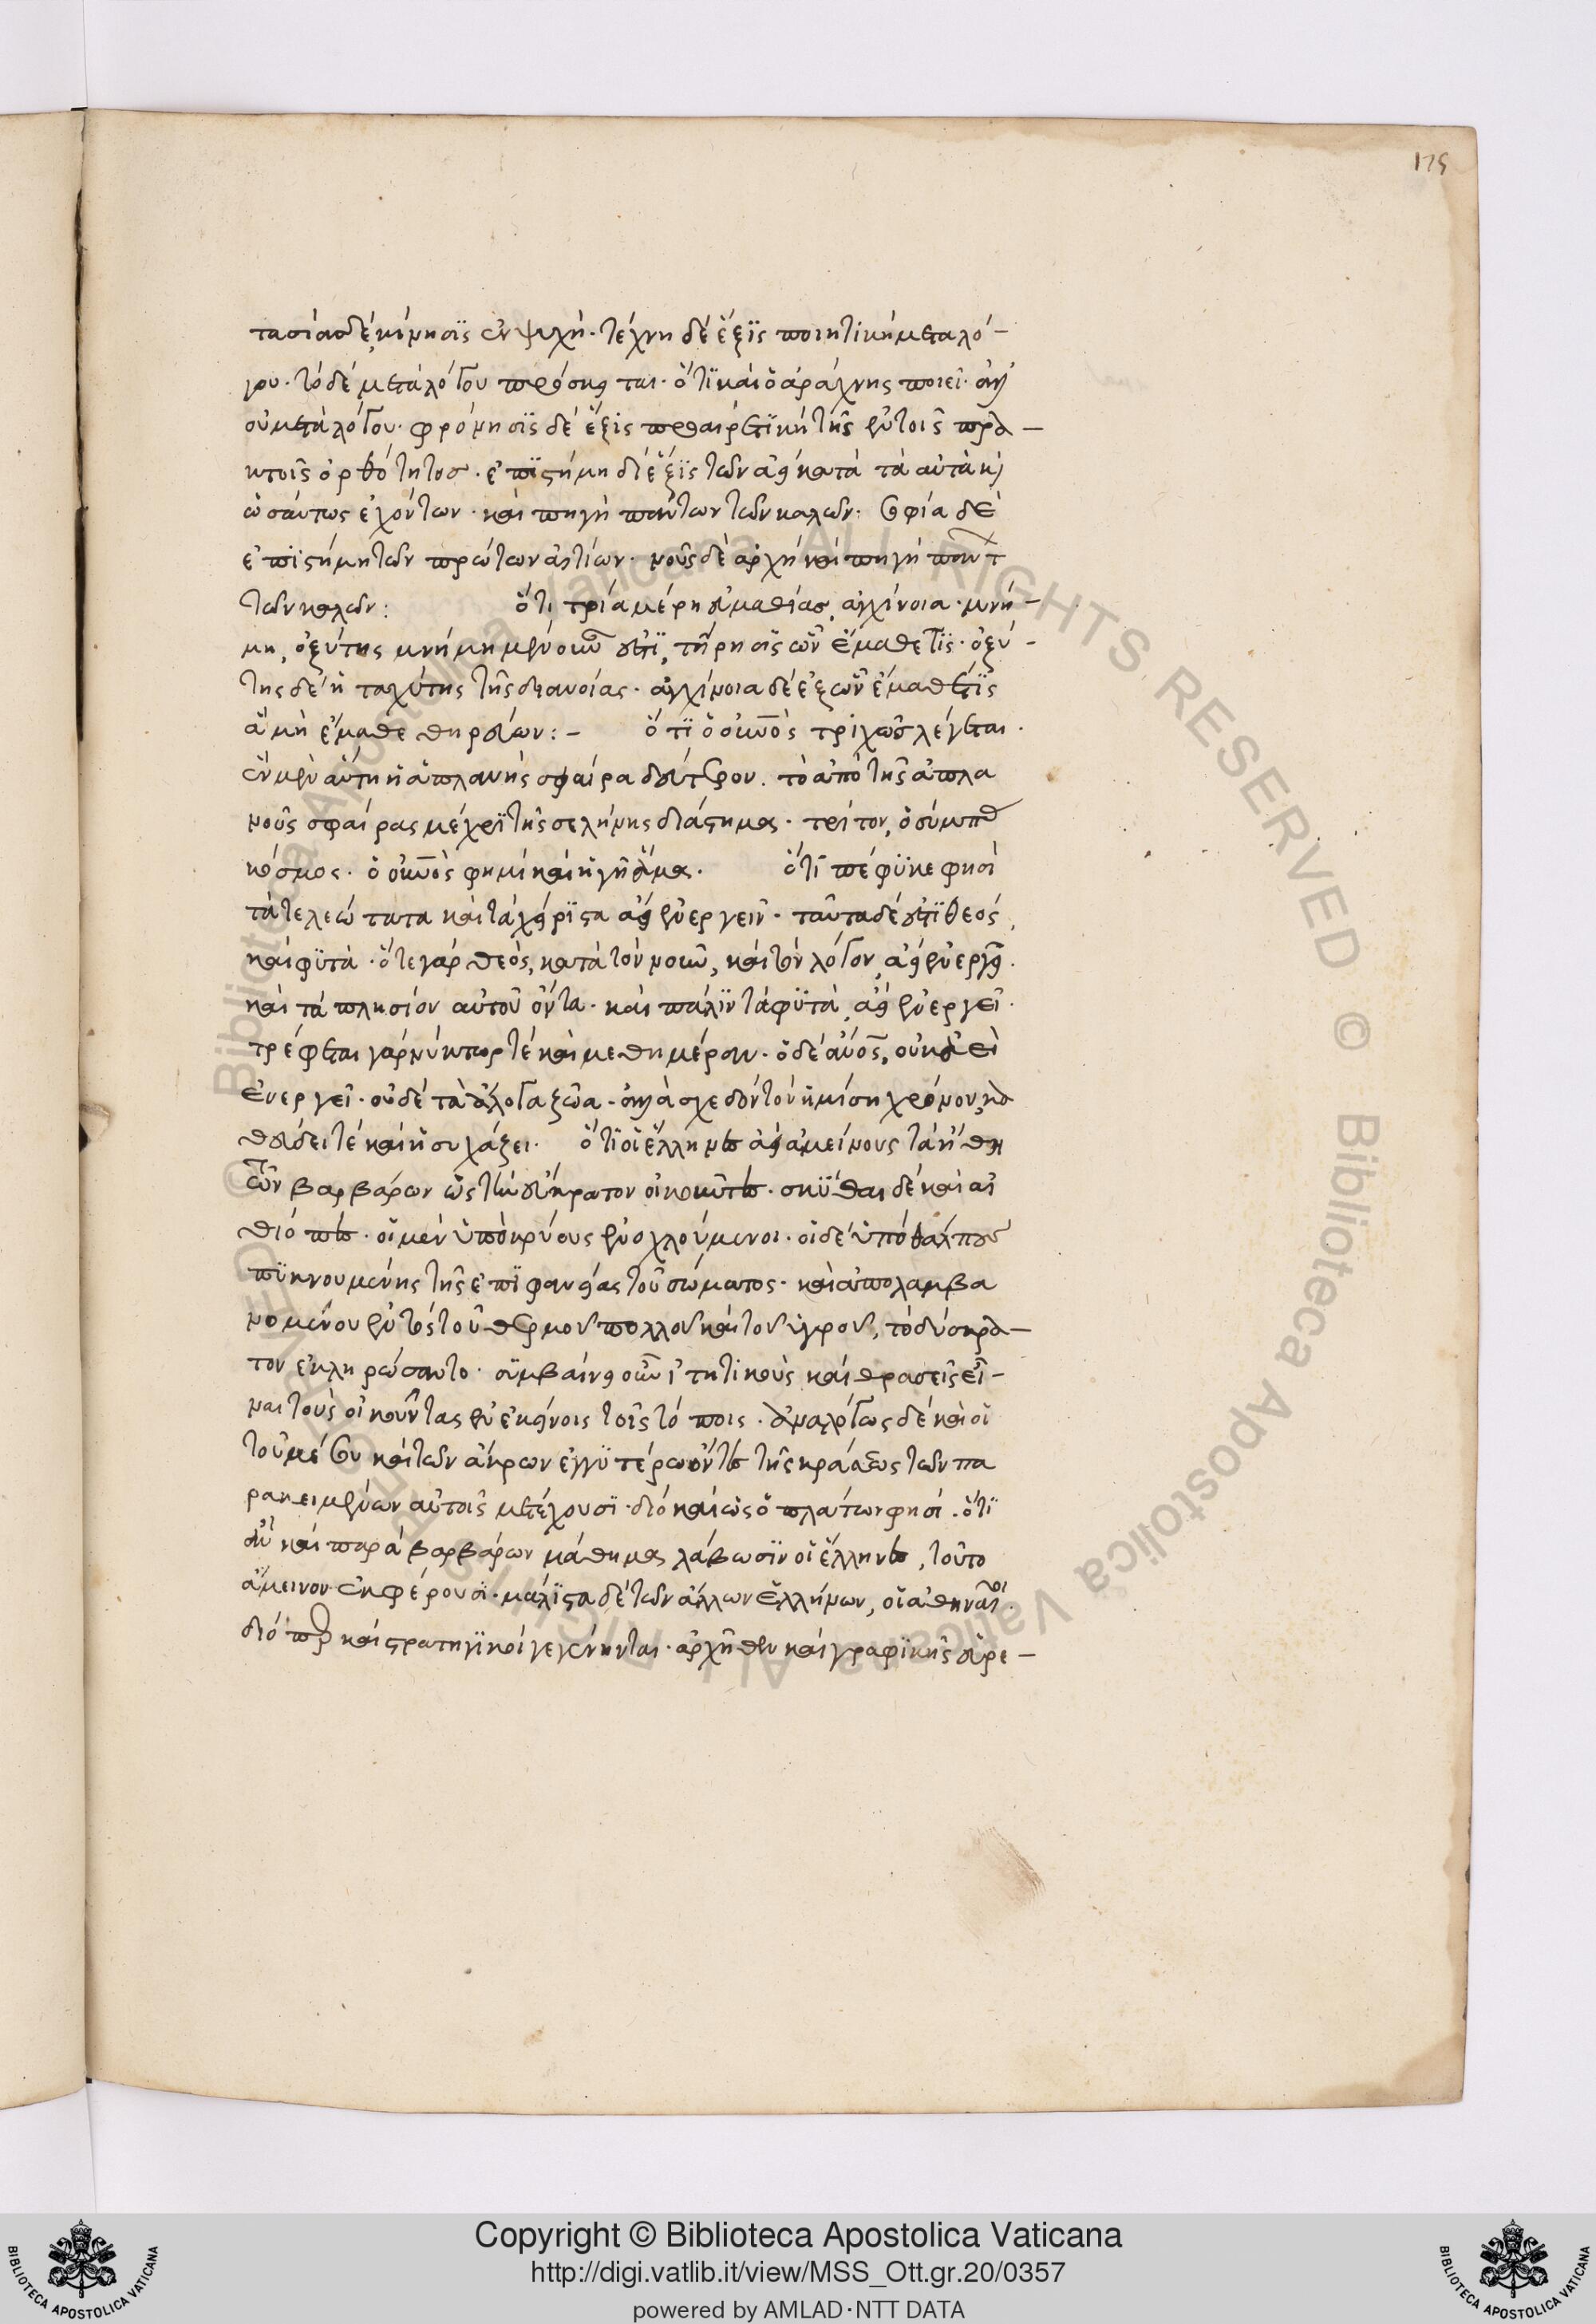 175
τασία δέ, κίνησϊς ἐν ψυχῇ· τέχνη δὲ ἕξϊς ποιητικὴ μεταλό-
γου· τὸ δὲ μετὰ λόγου πρόσκειται· ὅτϊ καὶ ὁ ἀράχνης ποιεῖ· ἀλλ'
οὐ μετὰ λόγου· φρόνησϊς δὲ ἕξις προαιρετϊκὴ τῆς ἐν τοῖς πρα-
κτοῖς ὀρθότητος· ἐπϊστήμη δὲ ἕξϊς τῶν ἀεὶ κατὰ τὰ αὐτὰ καὶ
ὡσαύτως ἐχόντων· καὶ πηγὴ πάντων τῶν καλῶν· σοφία δὲ
ἐπϊστήμη τῶν πρώτων αἰτίων· νοῦς δὲ ἀρχὴ καὶ πηγὴ πάντ
τῶν καλῶν: ὅτι τρία μέρη εὐμαθίας, ἀγχίνοια· μνή-
μη, ὀξύτης μνήμη μὲν οὖν ἐστϊ, τήρησις ὧν ἔμαθε τϊς· ὀξύ-
της δὲ ἡ ταχύτης τῆς διανοίας· ἀγχίνοια δὲ ἐξ ὧν ἔμαθέ τϊς
ἃ μὴ ἔμαθε θηρεύων:- ὅτϊ ὁ οὐνὸς τριχῶς λέγεται·
ἓν μὲν αὕτη ἡ ἀπλανὴς σφαίρα δεύτερον. τὸ ἀπὸ τῆς ἀπλα
νοῦς σφαίρας μέχρϊ τῆς σελήνης διάστημα· τρίτον, ὁ σύμπας
κόσμος· ὁ οὐνὸς φημὶ καὶ ἡ γῆ ἅμα. ὅτϊ πέφϋκε φησὶ
τὰ τελεώτατα καὶ τὰ χείρϊστα ἀεὶ ἐνεργεῖν· ταῦτα δέ ἐστϊ θεός,
καὶ φϋτά· ὅ τε γὰρ θεὸς, κατὰ τὸν νοῦν, καὶ τὸν λόγον, ἀεὶ ἐνεργεῖ.
καὶ τὰ πλησίον αὐτοῦ ὄντα· καὶ πάλϊν τὰ φϋτὰ, ἀεὶ ἐνεργεῖ·
τρέφεται γὰρ νύκτωρ τὲ καὶ μεθημέραν· ὁ δὲ ἄνος, οὐκ ἀεὶ
ἐνεργεῖ· οὐδὲ τὰ ἄλογα ζῶα· ἀλλὰ σχεδὸν τὸν ἥμίση χρόνον, κα
θεύδει τὲ καὶ ἡσυχάζει· ὅτϊ οἱ ἕλληνες ἀεὶ ἀμείνους τὰ ἤθη
τῶν βαρβάρων ὡς τὴν εὔκρατον οἰκοῦντες· σκϋθαι δὲ καὶ αἰ
θίοπες· οἱ μὲν ὑπὸ κρύους ἐνοχλούμενοι· οἱ δὲ ὑπὸ θάλπους
πϋκνουμένης τῆς ἐπϊφανείας τοῦ σώματος· καὶ ἀπολαμβα
νομένου ἐντὸς τοῦ θερμοῦ πολλοῦ καὶ τοῦ ὑγροῦ, τὸ δύσκρα-
τον ἐκληρώσαντο· σϋμβαίνει οὖν ἰτητικοὺς καὶ θρασεῖς εἶ-
ναι τοὺς οἰκοῦντας ἐν ἐκείνοις τοῖς τόποις· ἀναλόγως δὲ καὶ οἱ
τοῦ μέσου καὶ τῶν ἄκρων ἐγγϋτέρω ὄντες τῆς κράσεως τῶν πα
ρακειμένων αὐτοῖς μετέχουσϊ· διὸ καὶ ὡς ὁ πλάτων φησί· ὅτϊ
ἂν καὶ παρὰ βαρβάρων μάθημα λάβωσϊν οἱ ἕλληνες, τοῦτο
ἄμεινον ἐκφέρουσϊ· μάλϊστα δὲ τῶν ἄλλων ἑλλήνων, οἱ ἀθηναῖοι.
διόπερ καὶ στρατηγϊκοὶ γεγένηνται· ἀρχῆθεν καὶ γραφϊκῆς εὑρε-
Copyright © Biblioteca Apostolica Vaticana
http://digi.vatlib.it/view/MSS_Ott.gr.20/0357
powered by AMLAD·NTT DATA